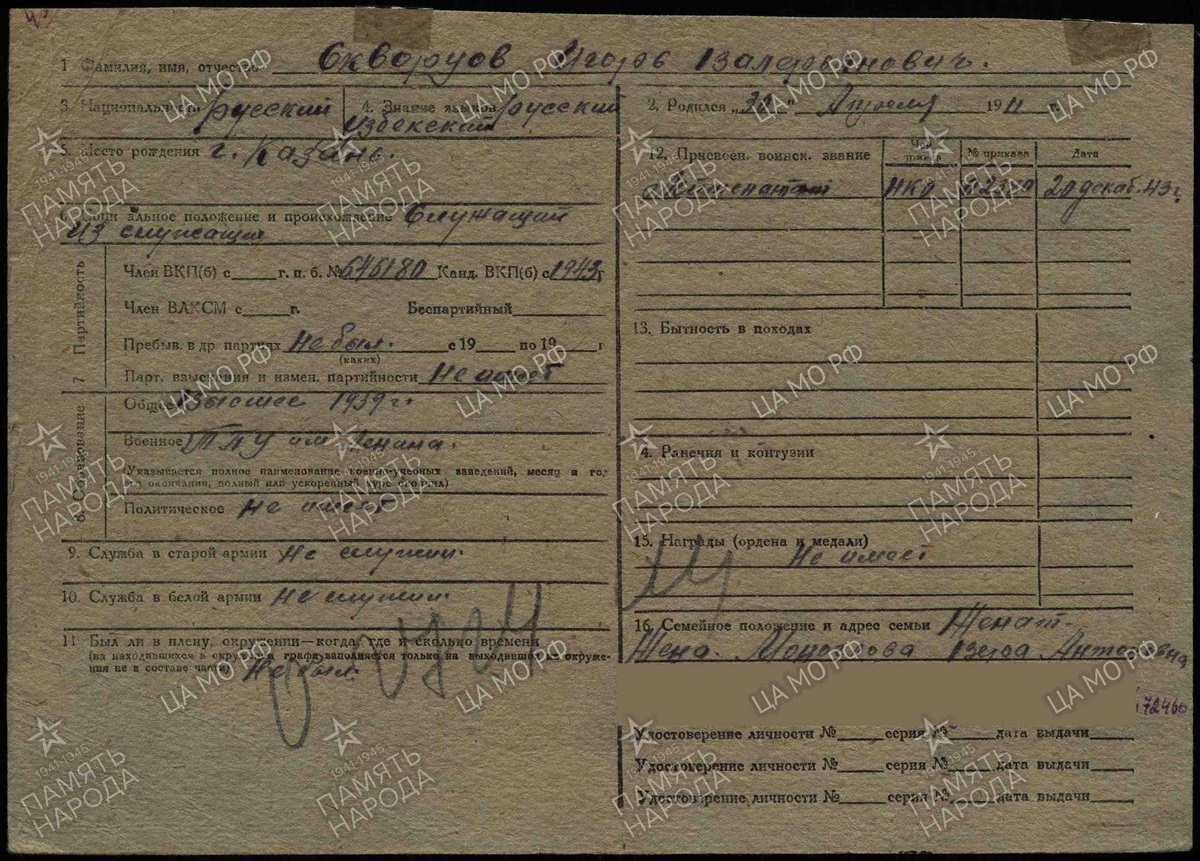 1 Фамилия, имя, отчество Скворцов Игорь Валерьянович.
3 Национальность русский 4. Знание языков русский
узбекский
5. Место рождения г. Казань.
6. Социальное положение и происхождение Служащий
из служащих
7 Партийность
Член ВКП(б) с г. п. б. № Канд. ВКП(б) с 1943 г
Член ВЛКСМ с г. Беспартийный
Пребыв. в др. партиях Не был. с 19 по 19 г
(каких)
Парт. взыскания и измен. партийности Не имеет
8. Образование
Общее Высшее 1939 г.
Военное ТПУ им Ленина.
(Указывается полное наименование военно-учебных заведений, месяц и год
их окончания, полный или ускоренный курс окончил)
Политическое Не имеет
9. Служба в старой армии Не служил.
10. Служба в белой армии Не служил.
11 Был ли в плену, окружении—когда, где и сколько времени
(на находившихся в окружении графа заполняется только на выходивших из окруже-
ния не в составе части) Не был.
2. Родился „30“ Апреля 1911 г.
12. Присвоен. воинск. звание Чей приказ № приказа Дата
Лейтенант НКО 20 декаб. 43 г.
13. Бытность в походах
14. Ранения и контузии
15. Награды (ордена и медали)
Не имеет
16. Семейное положение и адрес семьи Женат-
Жена. Вера Антоновна
172460
Удостоверение личности № серия № дата выдачи
Удостоверение личности № серия № дата выдачи
Удостоверение личности № серия № дата выдачи
ЦА МО РФ
1941-1945
ПАМЯТЬ
НАРОДА